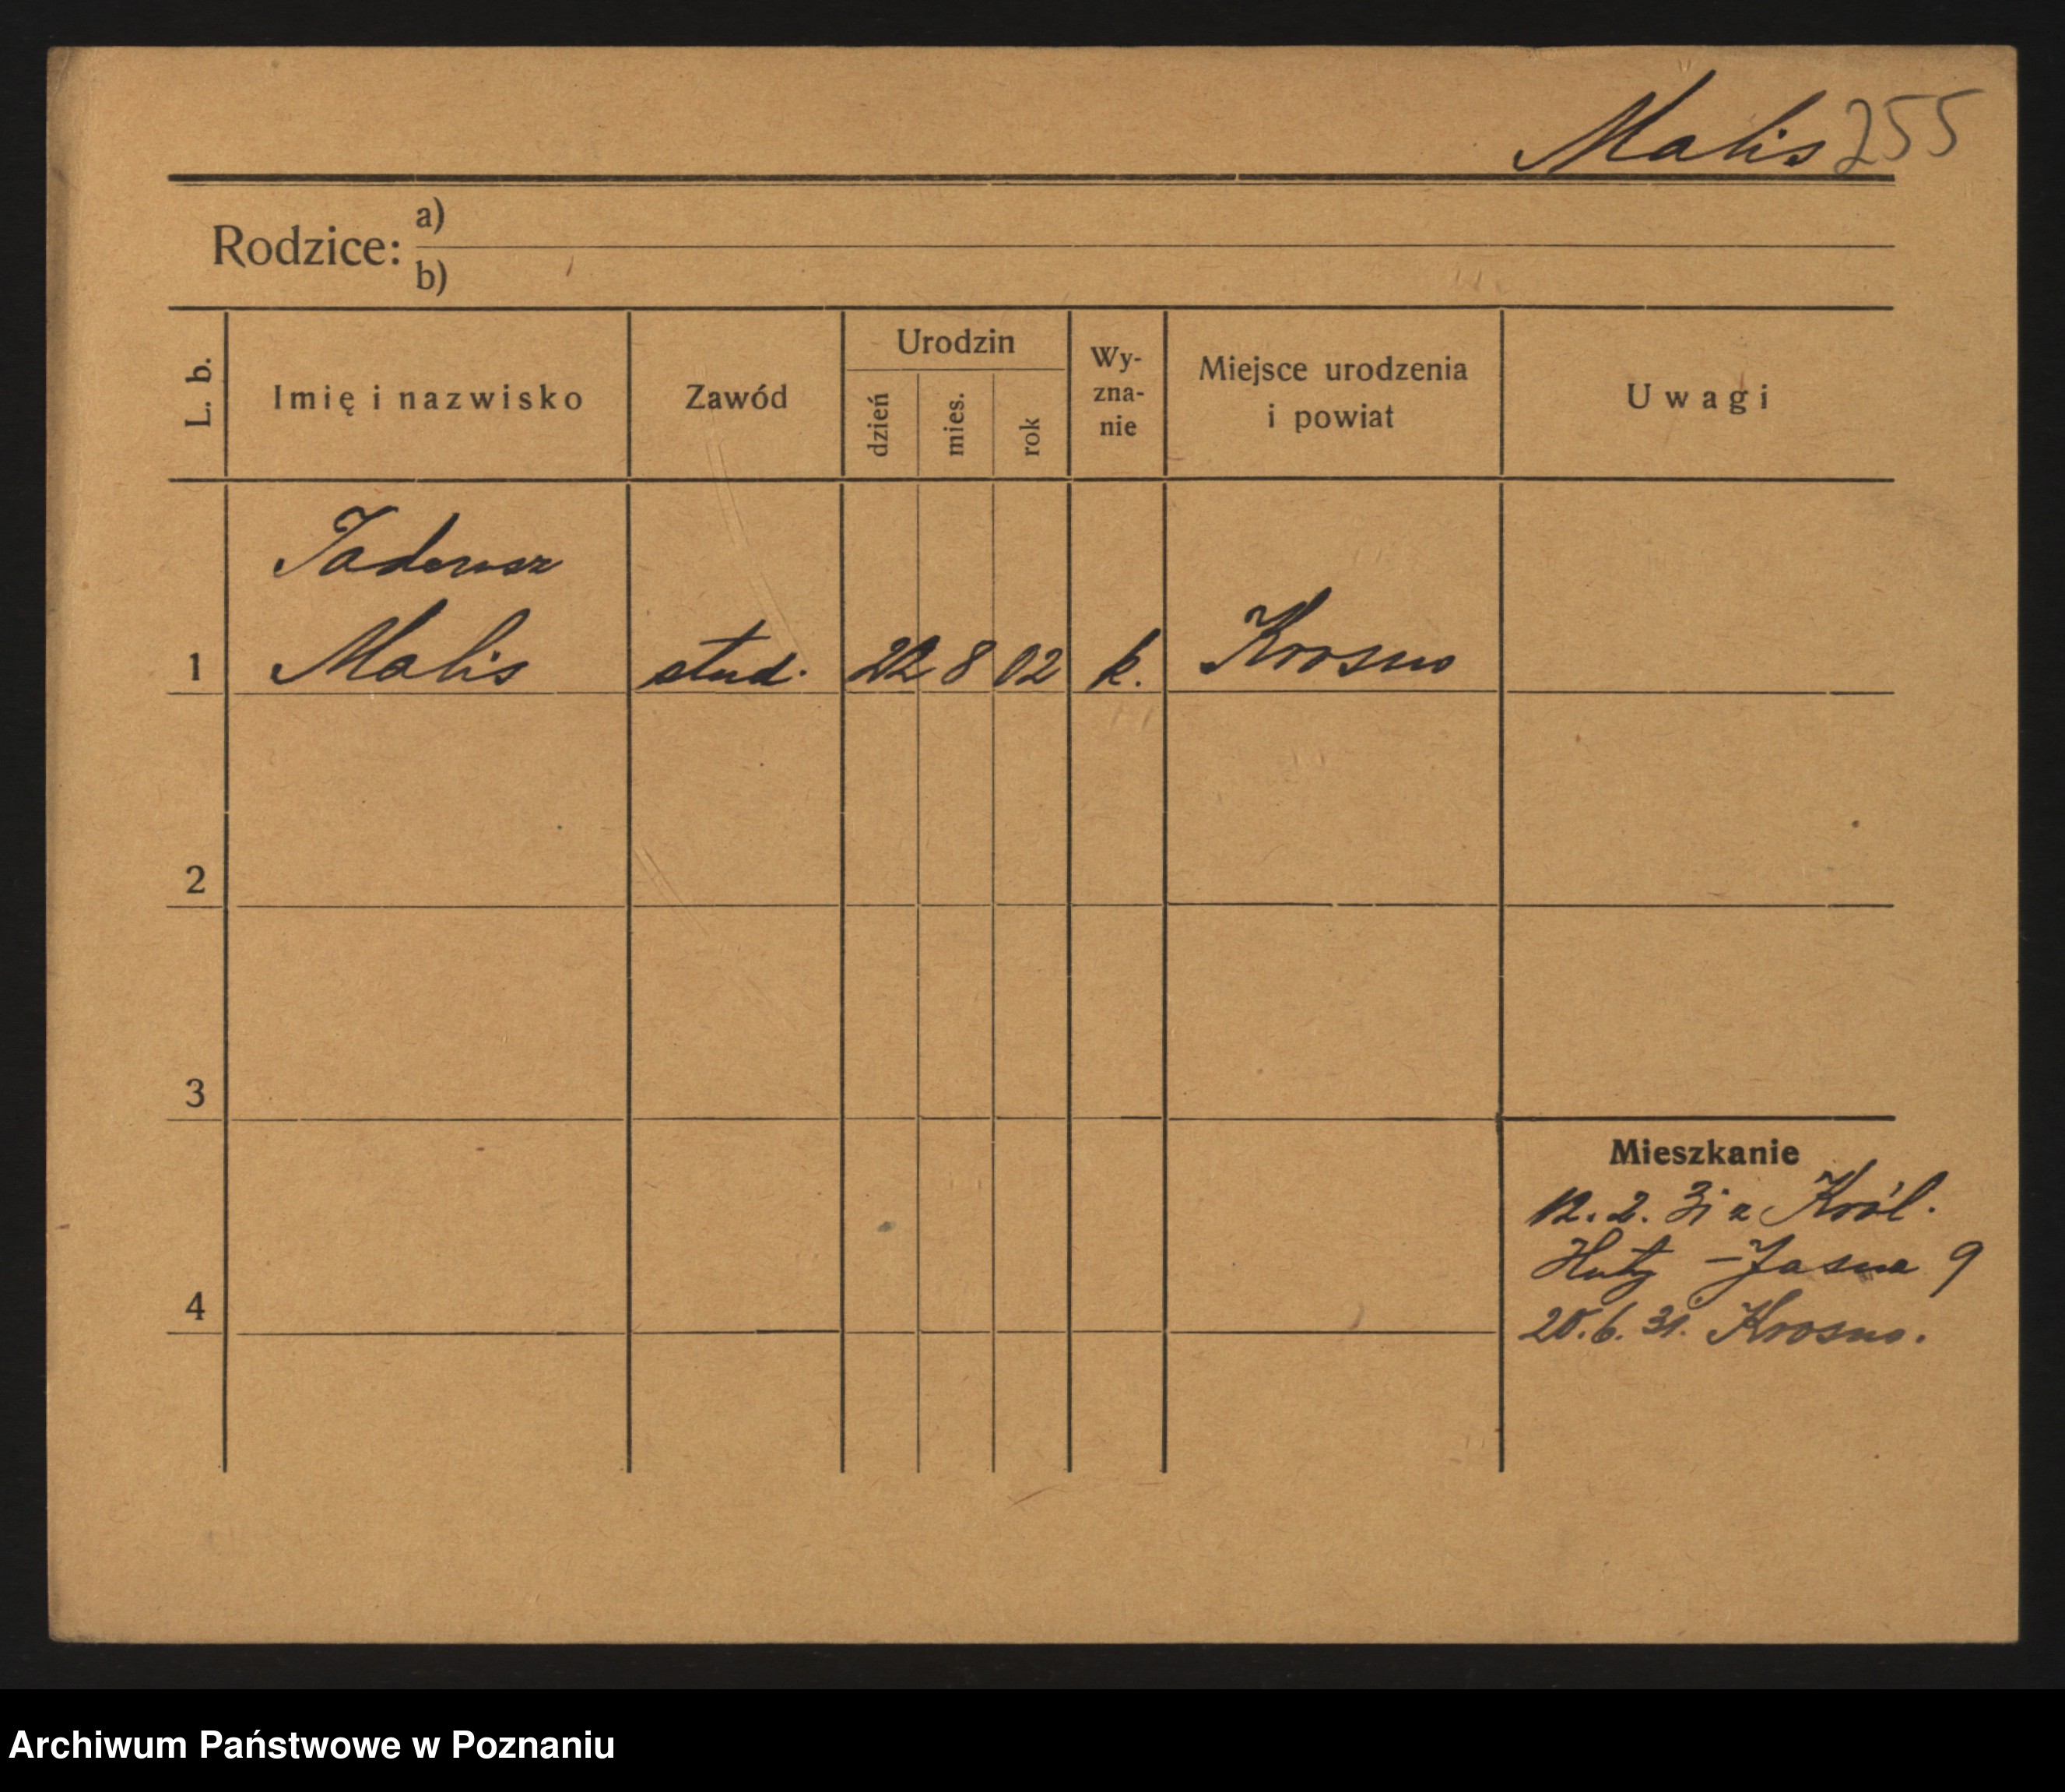 Malis 255
Rodzice: a)
b)
L. b.
Imię i nazwisko
Zawód
Urodzin
dzień
mies.
rok
Wy-
zna-
nie
Miejsce urodzenia
i powiat
Uwagi
Tadeusz
1 Malis stud. 22 8 02 k. Krosno
2
3
4
Mieszkanie
12. 2. 31 z Król.
Huty – Jasna 9
20. 6. 31. Krosno.
Archiwum Państwowe w Poznaniu